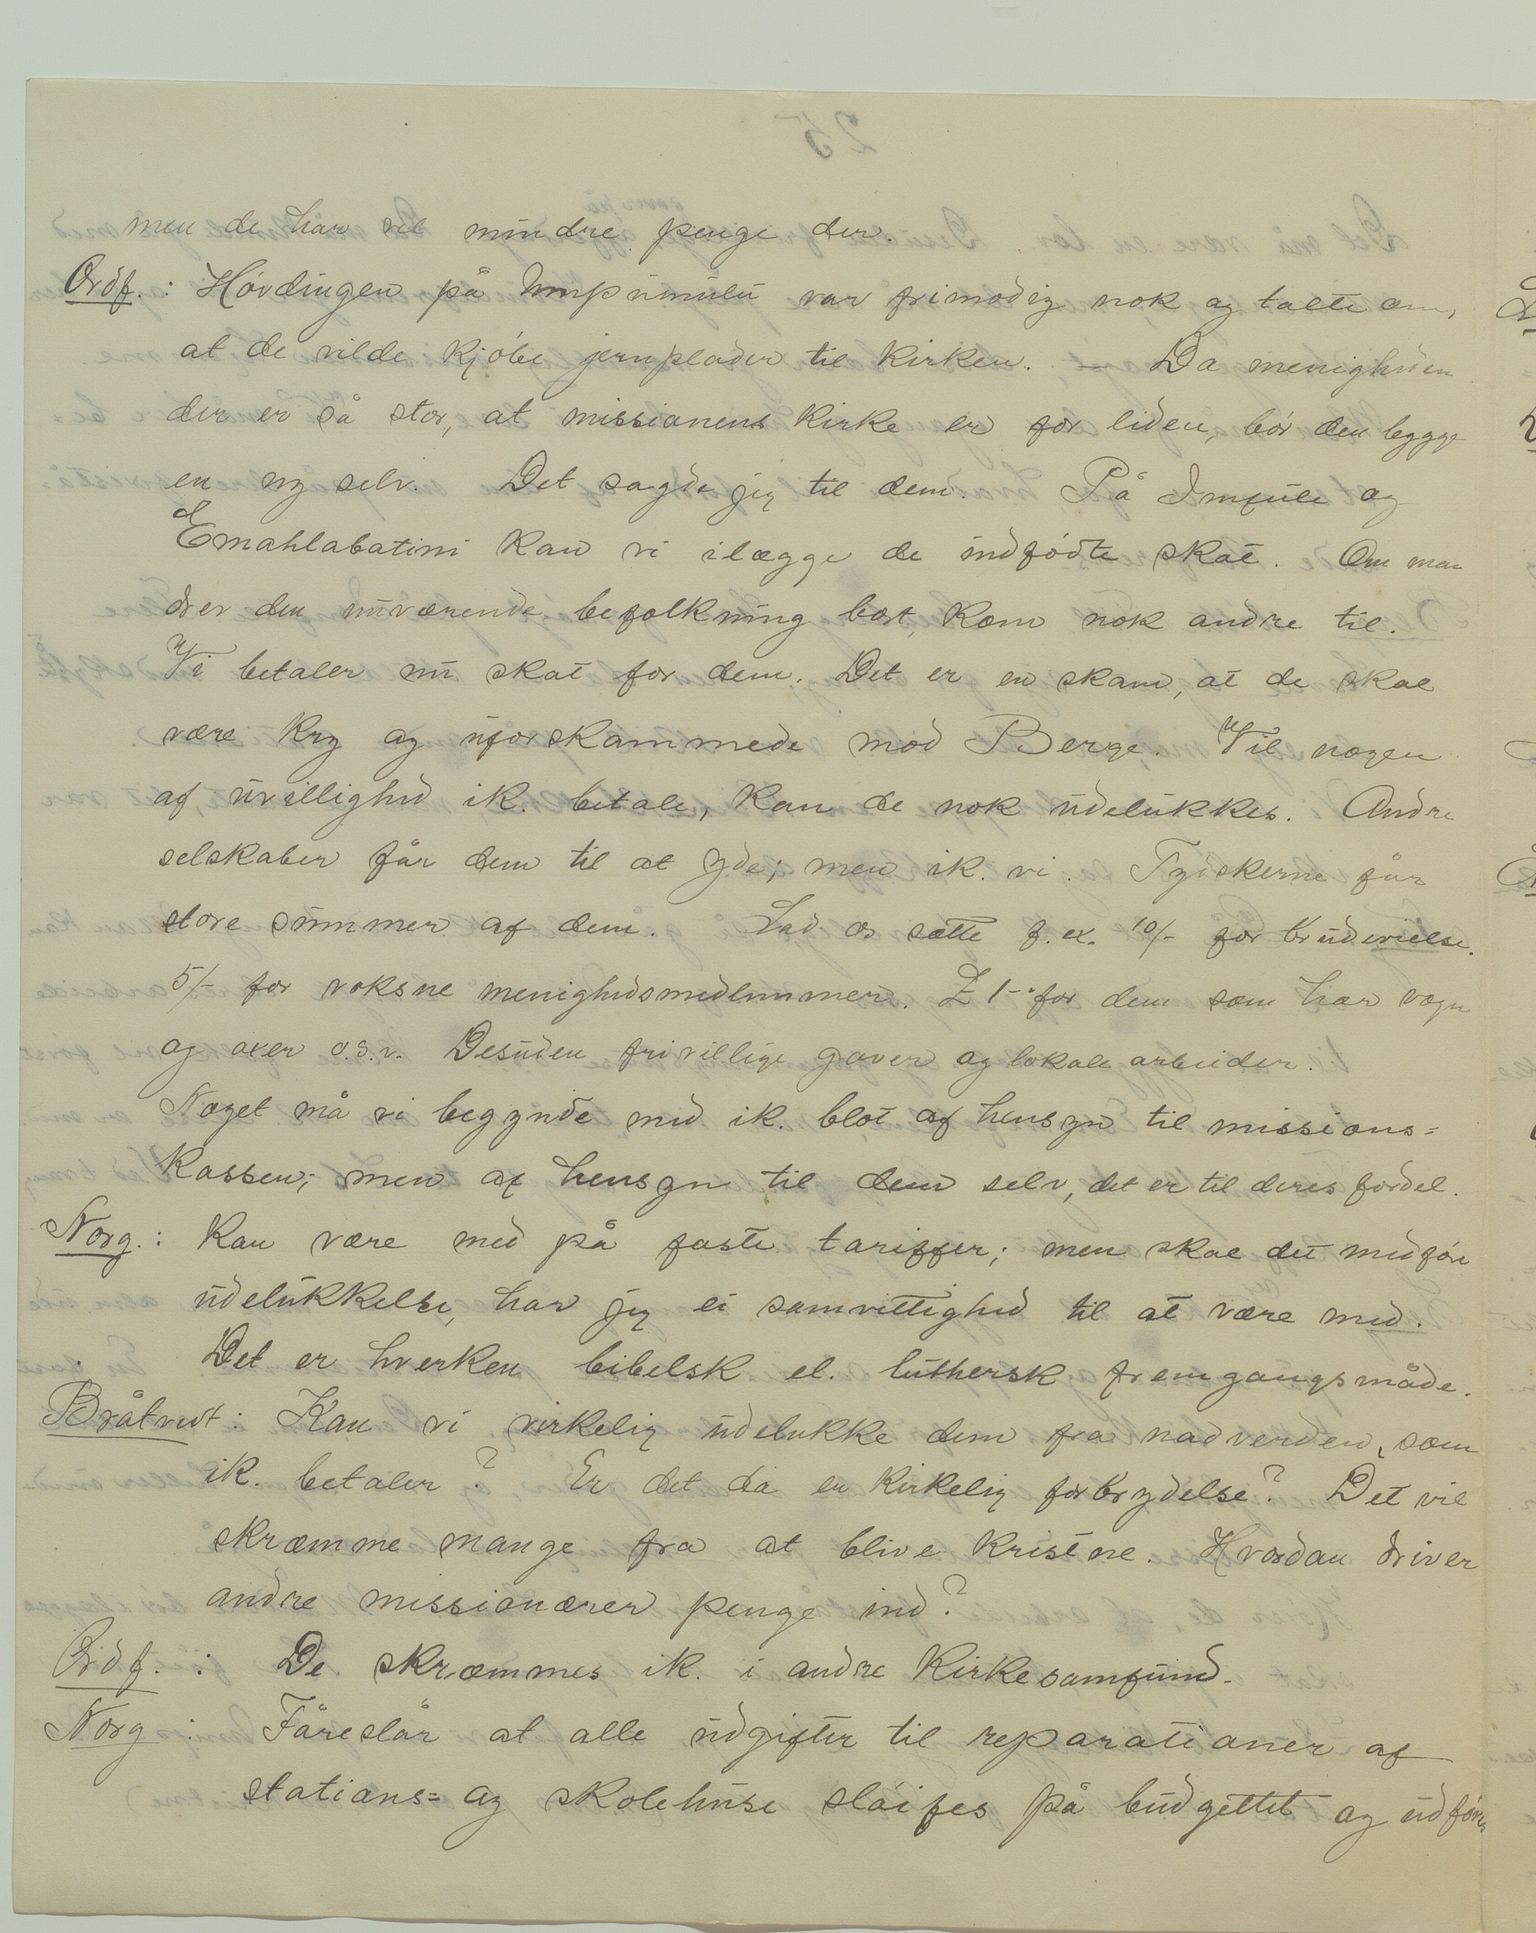 men de har vel mindre penge der.
Ordf.: Høvdingen på Umpumulu var frimodig nok og talte om,
at de vilde kjøbe jernplader til kirken. — Da menigheden
der er så stor, at missionens kirke er for liden, bør den bygge
en ny selv. Det sagde jeg til dem. På Imfule og
Emahlabatini kan vi ilægge de indfødte skat. Om man
drev den nuværende befolkning bort, kom nok andre til.
Vi betaler nu skat for dem. Det er en skam, at de skal
være kry og uforskammede mod Berge. Vil nogen
af uvillighed ik. betale, kan de nok udelukkes. Andre
selskaber får dem til at yde; men ik. vi. Tyskerne får
store summer af dem. Lad os sætte f. ex. 10/- for brudevielse.
5/- for voksne menighedsmedlemmer. £ 1-" for dem som har vogn
og oxer o.s.v. Desuden frivillige gaver og lokale arbeider.
Noget må vi begynde med ik. blot af hensyn til missions=
kassen; men af hensyn til dem selv, det er til deres fordel.
Norg.: Kan være med på faste tariffer; men skal det medføre
udelukkelse, har jeg ei samvittighed til at være med.
Det er hverken bibelsk el. luthersk fremgangsmåde.
Bråtvedt: Kan vi virkelig udelukke dem fra nadverden, som
ik. betaler? Er det da en kirkelig forbrydelse? Det vil
skræmme mange fra at blive kristne. Hvordan driver
andre missionærer penge ind?
Ordf.: De skræmmes ik. i andre kirkesamfund.
Norg: Fåreslår at alle udgifter til reparationer af
stations= og skolehuse sløifes på budgettet og udføres